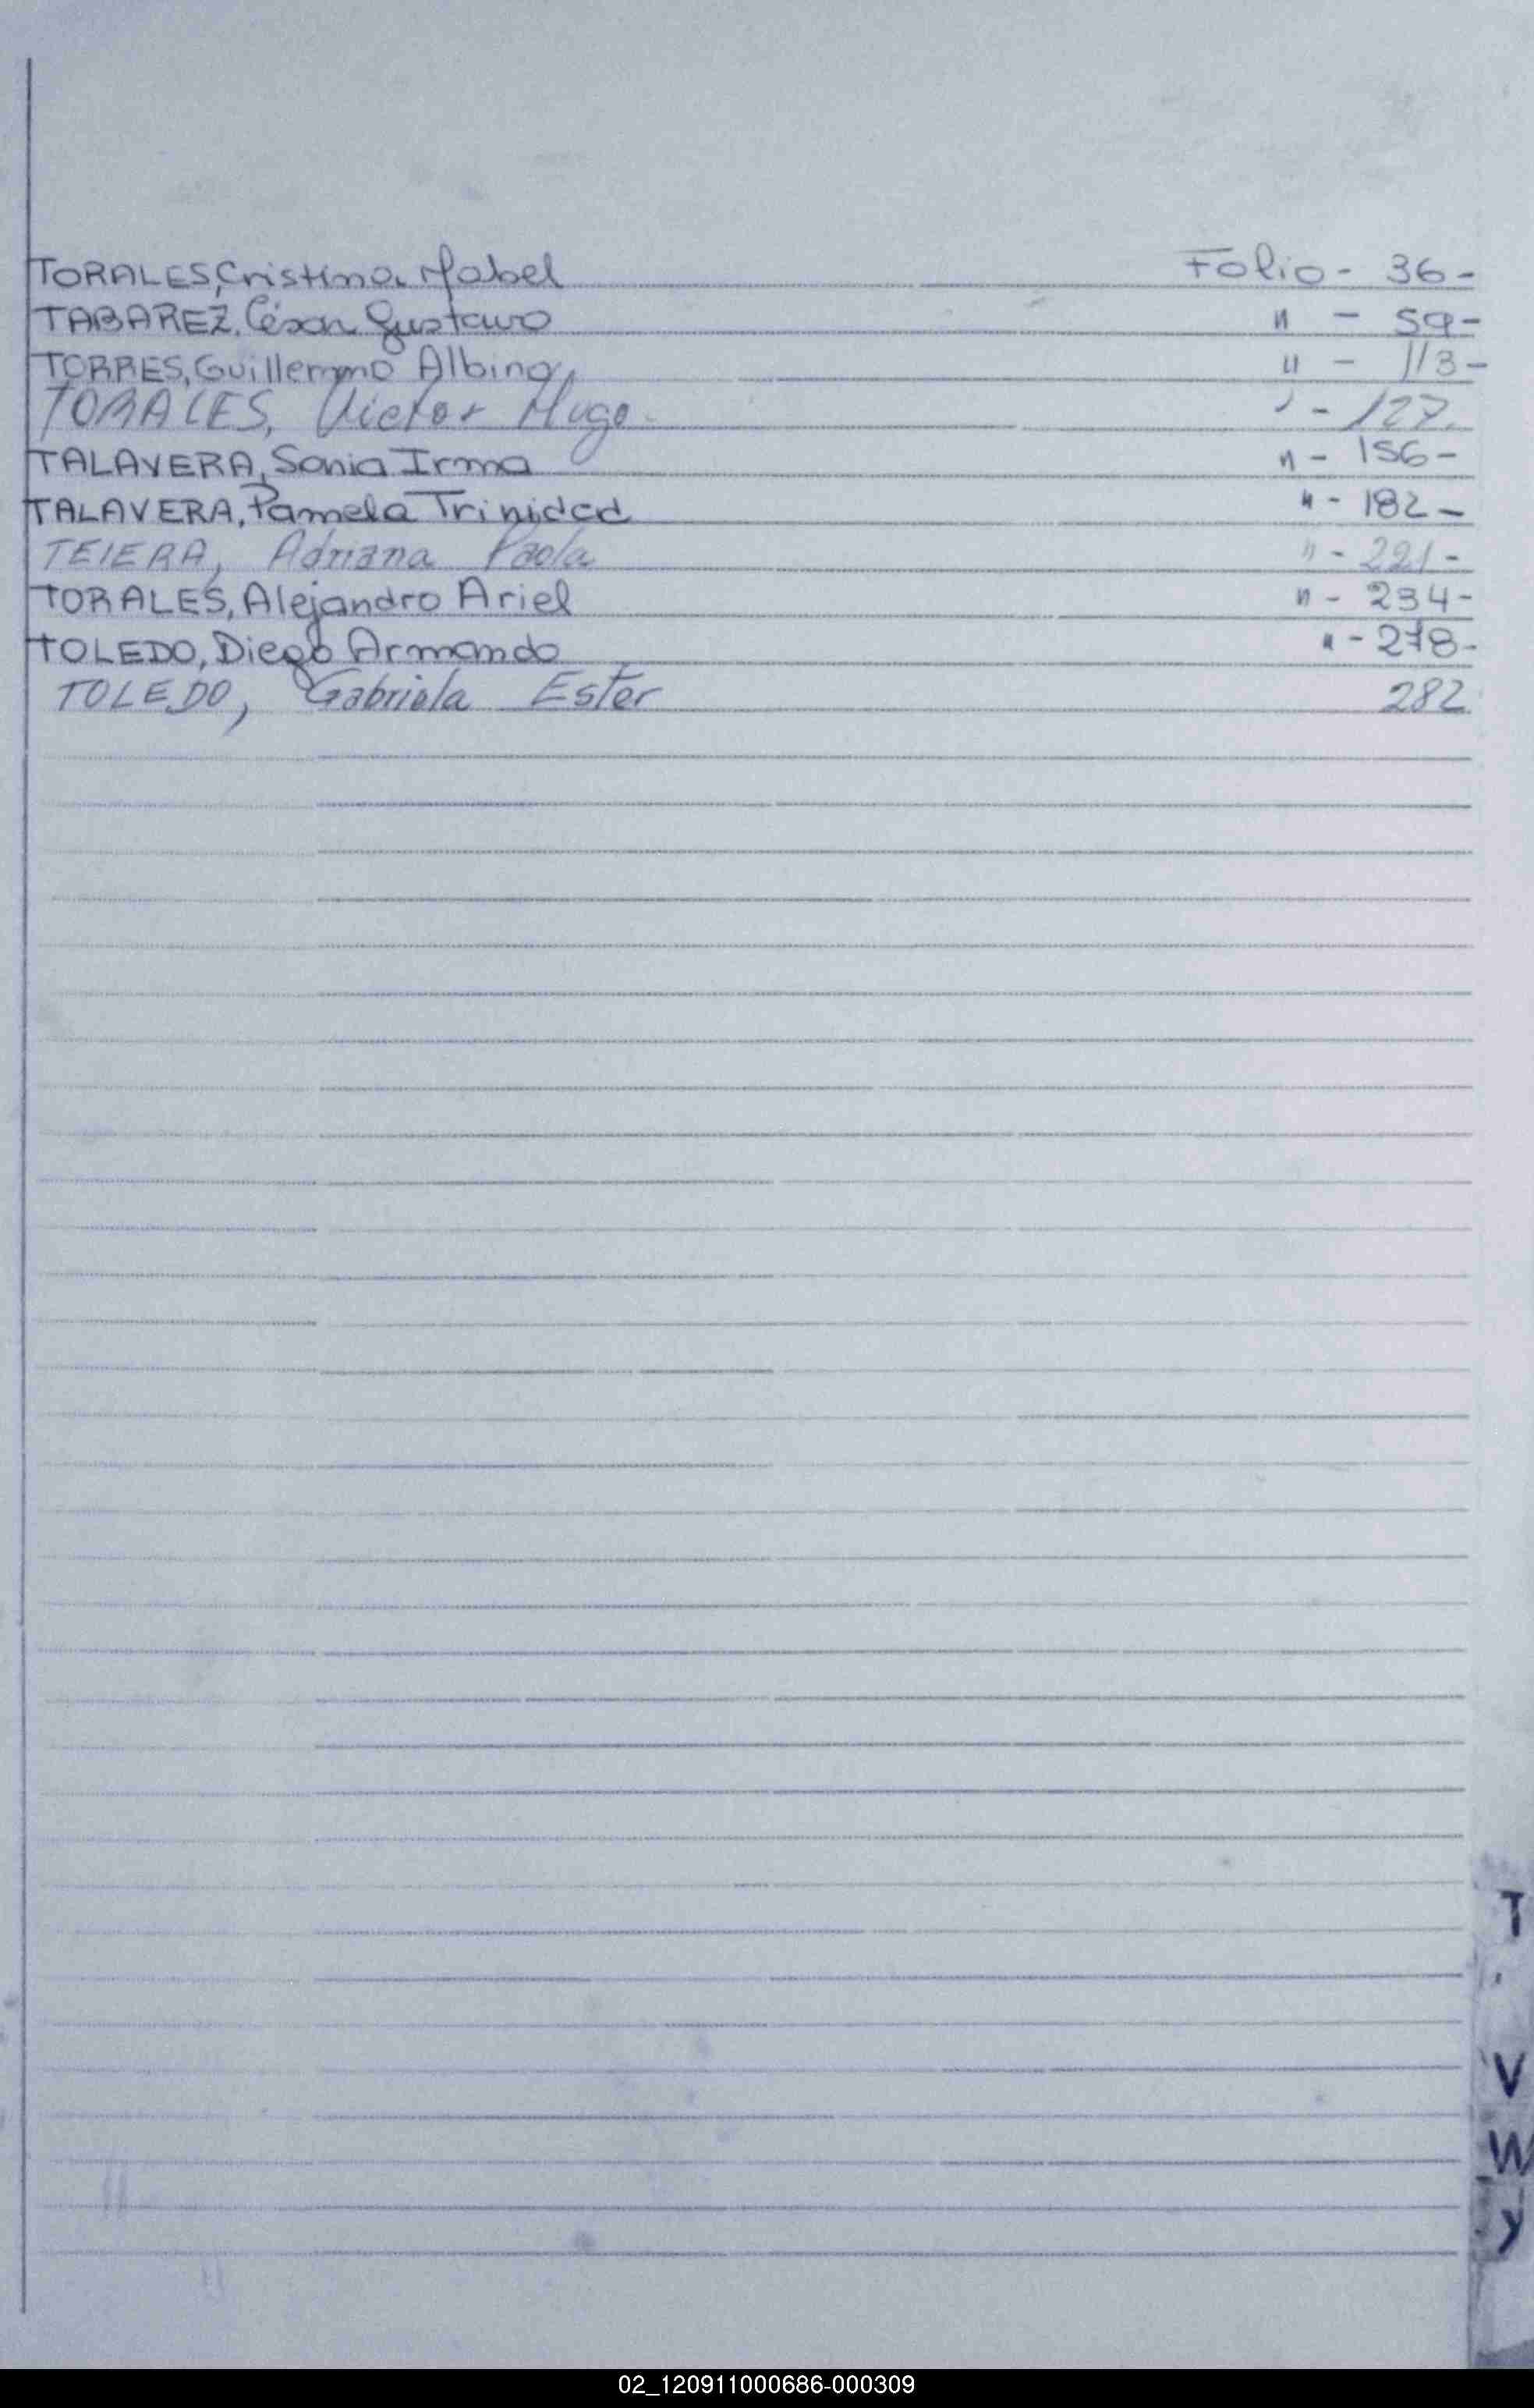 TORALES, Cristina Mabel Folio - 36 -
TABAREZ, César Gustavo " - 59 -
TORRES, Guillermo Albino " - 113 -
TORALES, Victor Hugo " - 127.
TALAVERA, Sonia Irma " - 156 -
TALAVERA, Pamela Trinidad " - 182 -
TEIERA, Adriana Paola " - 221 -
TORALES, Alejandro Ariel " - 234 -
TOLEDO, Diego Armando " - 278 -
TOLEDO, Gabriela Ester 282
T
V
W
Y
02_120911000686-000309